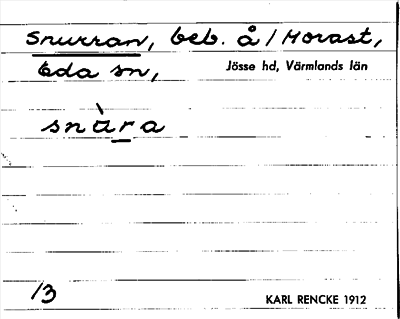 Snurran, beb. å / Morast,
Eda sn,
Jösse hd, Värmlands län
snὰra
/3
KARL RENCKE 1912